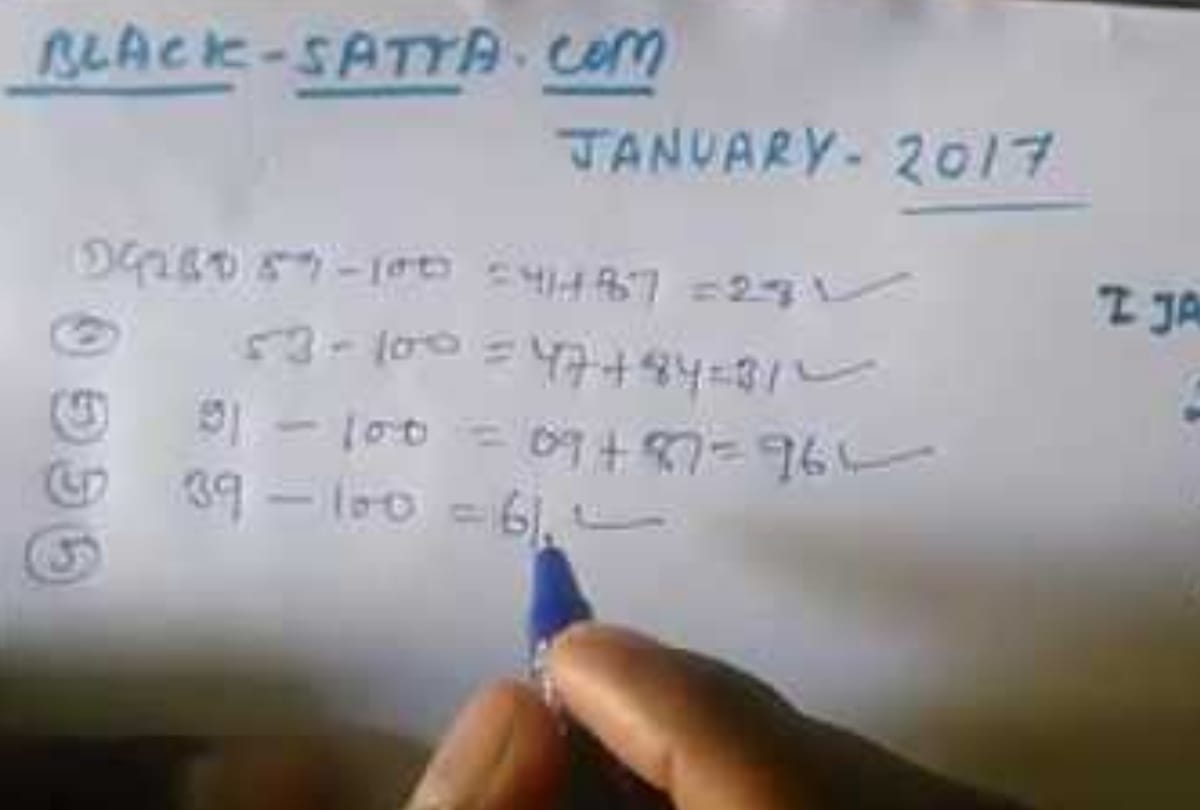 BLACK-SATTA.COM
JANUARY-2017
59-100 =41+87 =28
② 53-100 =47+84=31
③ 91 - 100 = 09+87= 96
④ 39 - 100 = 61
⑤
I JA